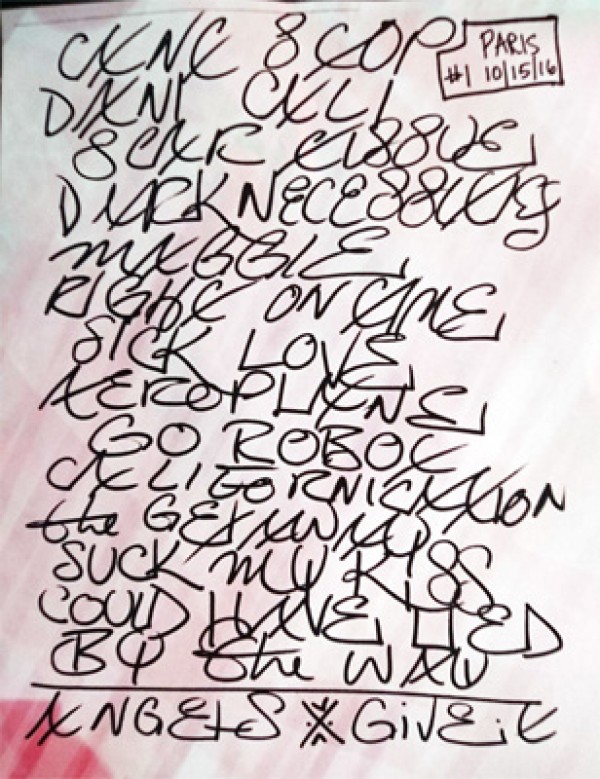 CAN'T STOP
PARIS
#1 10/15/16
DANI CALI
SCAR TISSUE
DARK NECESSITIES
MAGGIE
RIGHT ON TIME
SICK LOVE
AEROPLANE
GO ROBOT
CALIFORNICATION
the GETAWAY
SUCK MY KISS
COULD HAVE LIED
BY the WAY
ANGELS GIVE it